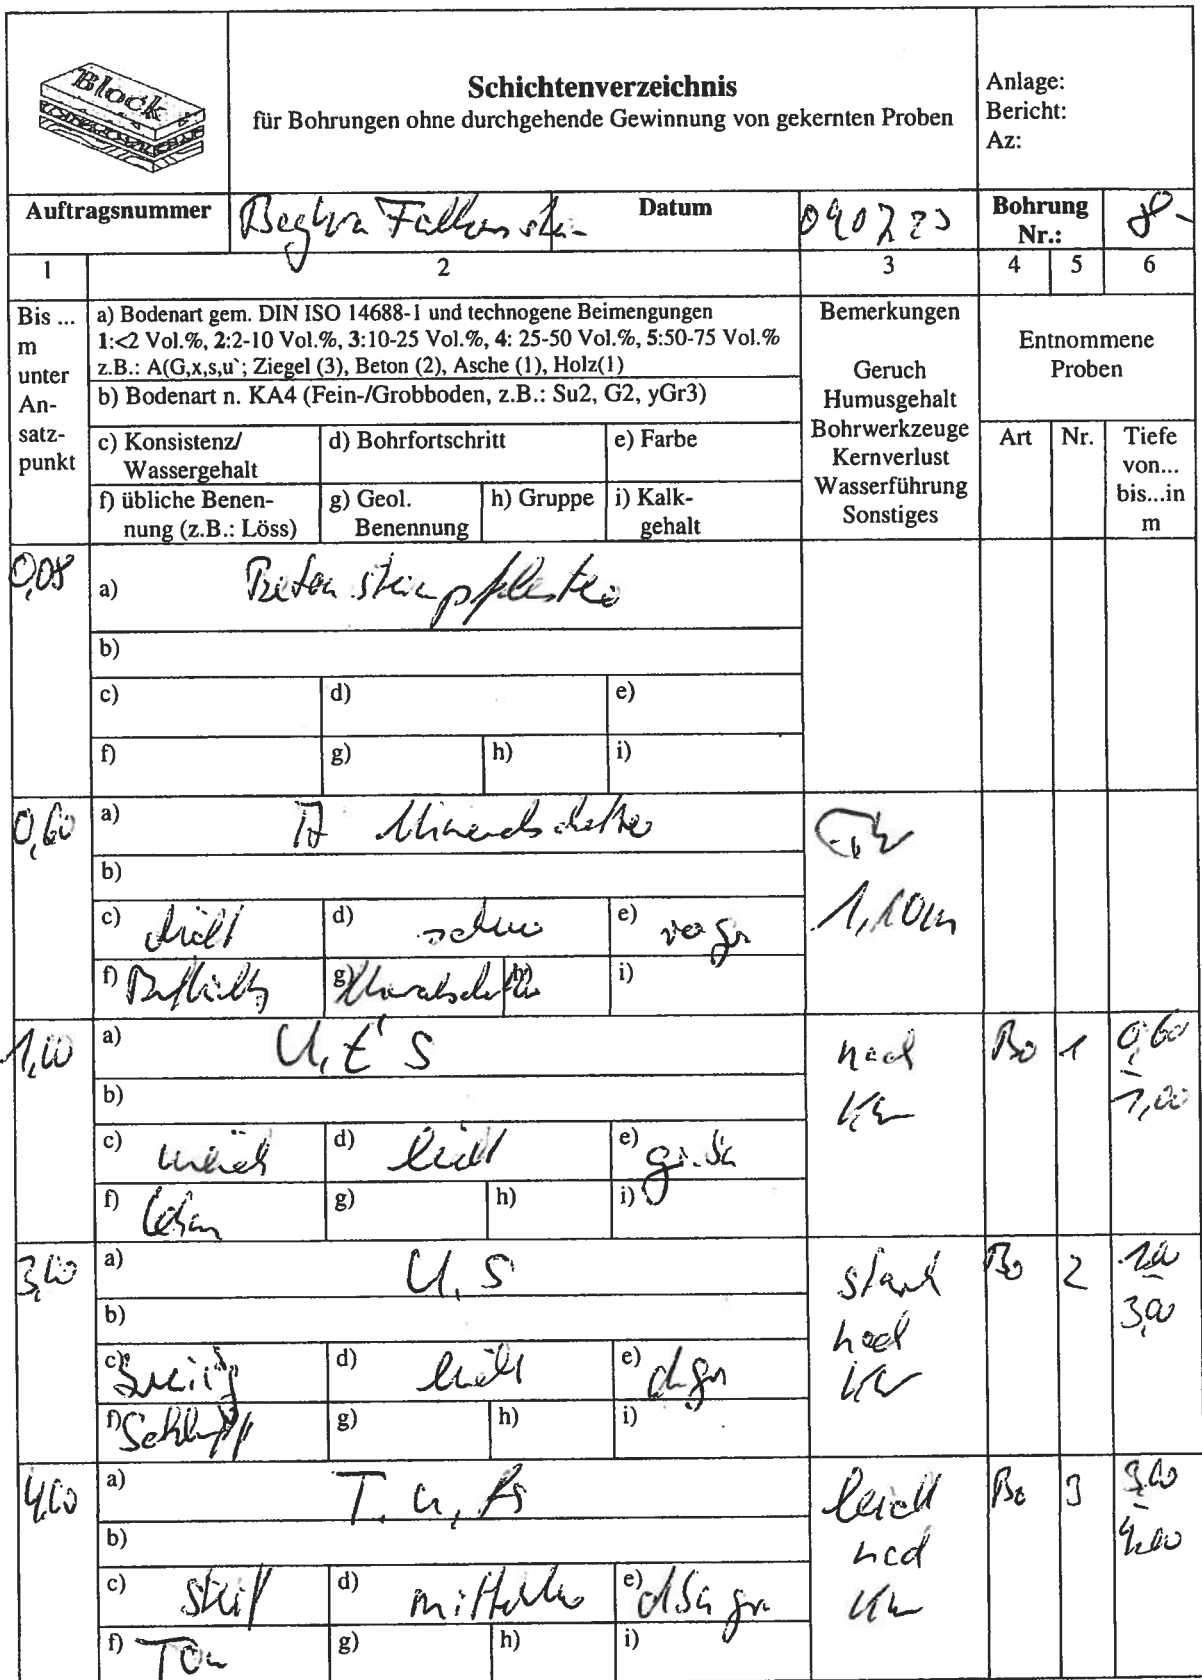 Block
Schichtenverzeichnis
für Bohrungen ohne durchgehende Gewinnung von gekernten Proben
Anlage:
Bericht:
Az:
Auftragsnummer
Datum
Bohrung
Nr.:
8
1 2 3 4 5 6
Bis ...
m
unter
An-
satz-
punkt
a) Bodenart gem. DIN ISO 14688-1 und technogene Beimengungen
1:<2 Vol.%, 2:2-10 Vol.%, 3:10-25 Vol.%, 4: 25-50 Vol.%, 5:50-75 Vol.%
z.B.: A(G,x,s,u`; Ziegel (3), Beton (2), Asche (1), Holz(1)
b) Bodenart n. KA4 (Fein-/Grobboden, z.B.: Su2, G2, yGr3)
c) Konsistenz/
Wassergehalt
d) Bohrfortschritt
e) Farbe
f) übliche Benen-
nung (z.B.: Löss)
g) Geol.
Benennung
h) Gruppe
i) Kalk-
gehalt
Bemerkungen
Geruch
Humusgehalt
Bohrwerkzeuge
Kernverlust
Wasserführung
Sonstiges
Entnommene
Proben
Art
Nr.
Tiefe
von...
bis...in
m
0,08
a) Betonsteinpflaster
b)
c) d) e)
f) g) h) i)
0,60
a) A Mineralschotter
b)
c) dicht d) schwer e)
f) g) h) i)
1,10m
1,00
a) U, t' s
b)
c) weich d) leicht e)
f) Lehm g) h) i)
Bo 1 0,60
-
1,00
3,00
a) U, s
b)
c) breiig d) leicht e) dgr
f) Schluff g) h) i)
stark
Bo 2 1,00
-
3,00
4,00
a) T, u, fs
b)
c) steif d) mittel e)
f) Ton g) h) i)
leicht
Bo 3 3,00
-
4,00